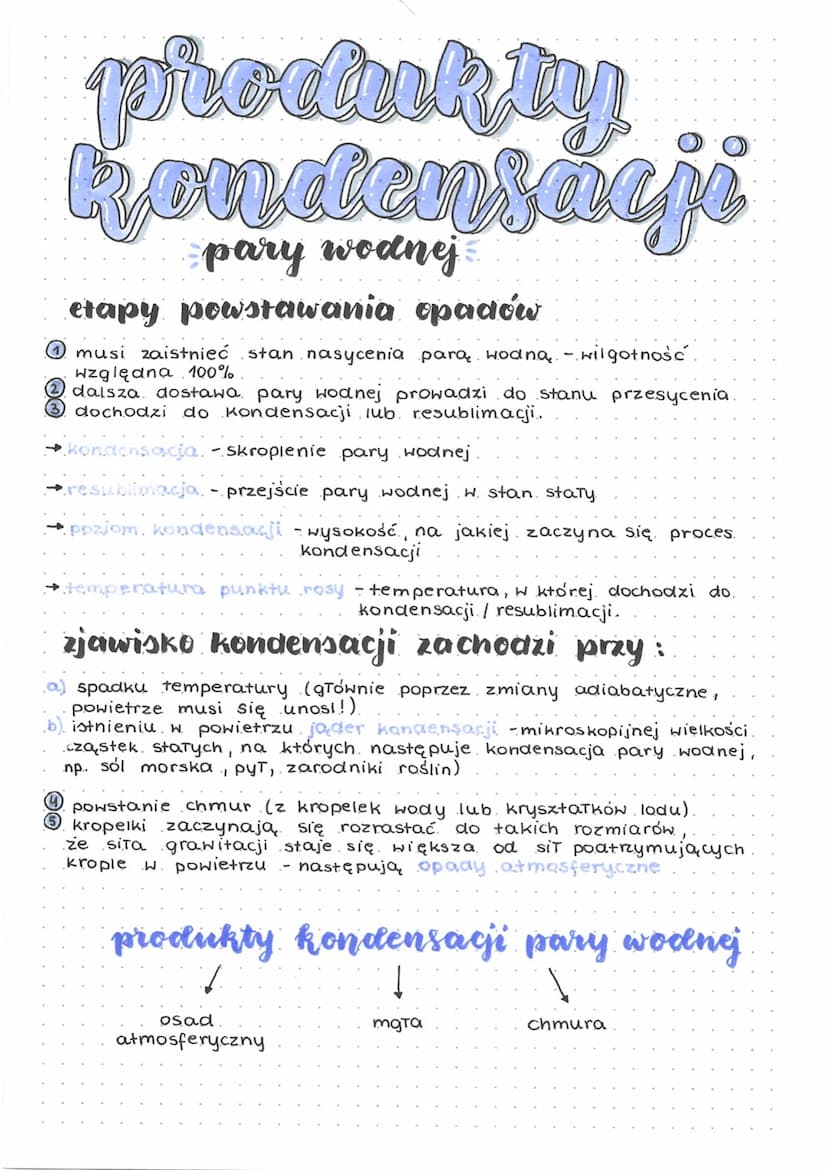 produkty
kondensacji
pary wodnej
etapy powstawania opadów
① musi zaistnieć stan nasycenia parą wodną - wilgotność
względna 100%
② dalsza dostawa pary wodnej prowadzi do stanu przesycenia
③ dochodzi do kondensacji lub resublimacji.
→ kondensacja - skroplenie pary wodnej
→ resublimacja - przejście pary wodnej w stan stały
→ poziom kondensacji - wysokość, na jakiej zaczyna się proces
kondensacji
→ temperatura punktu rosy - temperatura, w której dochodzi do
kondensacji / resublimacji.
zjawisko kondensacji zachodzi przy:
a) spadku temperatury (głównie poprzez zmiany adiabatyczne,
powietrze musi się unosi!)
b) istnieniu w powietrzu jąder kondensacji - mikroskopijnej wielkości
cząstek stałych, na których następuje kondensacja pary wodnej,
np. sól morska, pył, zarodniki roślin)
④ powstanie chmur (z kropelek wody lub kryształków lodu)
⑤ kropelki zaczynają się rozrastać do takich rozmiarów,
że siła grawitacji staje się większa od sił podtrzymujących
krople w powietrzu - następują opady atmosferyczne
produkty kondensacji pary wodnej
osad
atmosferyczny
mgła
chmura